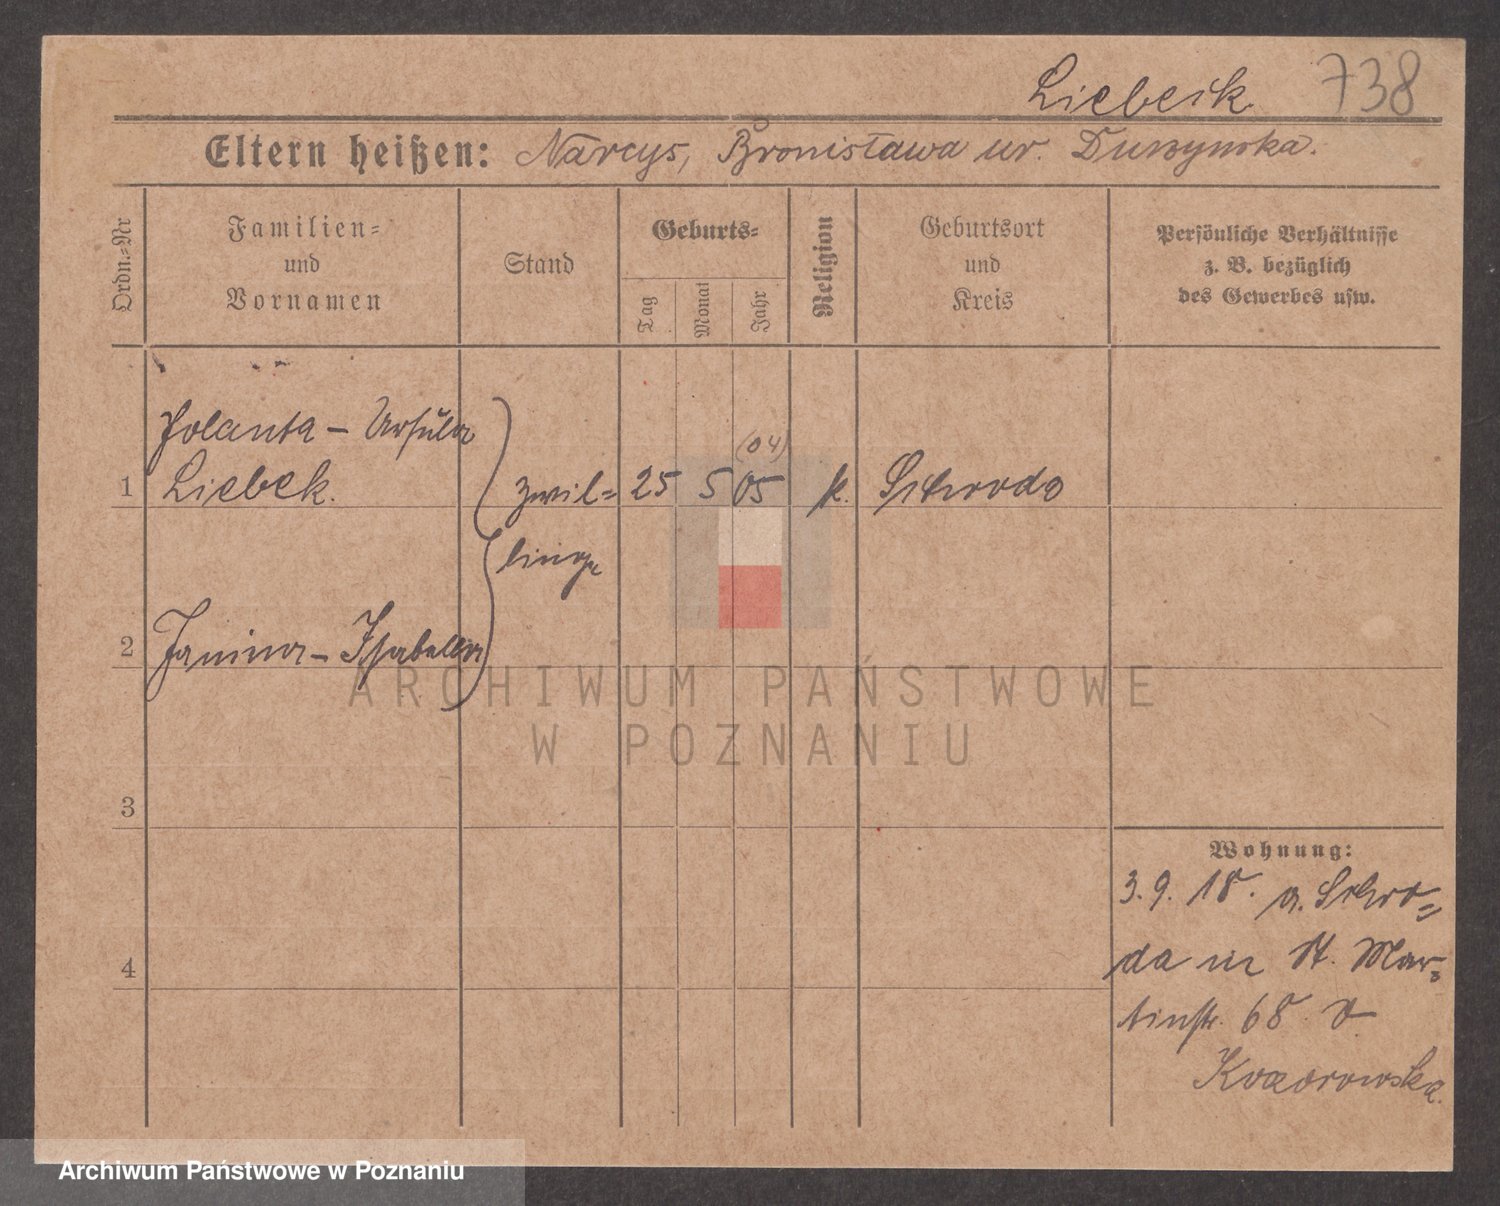 Liebeck 738
Eltern heißen: Narcys, Bronisława ur. Duszynska.
Ordn.=Nr
Familien=
und
Vornamen
Stand
Geburts=
Tag
Monat
Jahr
Religion
Geburtsort
und
Kreis
Persönliche Verhältnisse
z. B. bezüglich
des Gewerbes usw.
Jolanta – Ursula
(04)
1 Liebek. Zwil= 25 5 05 k. Schroda
linge
2 Janina – Isabella
ARCHIWUM PAŃSTWOWE
W POZNANIU
3
Wohnung:
3. 9. 18. a. Schro=
4 da in St. Mar=
tinstr. 68
Archiwum Państwowe w Poznaniu